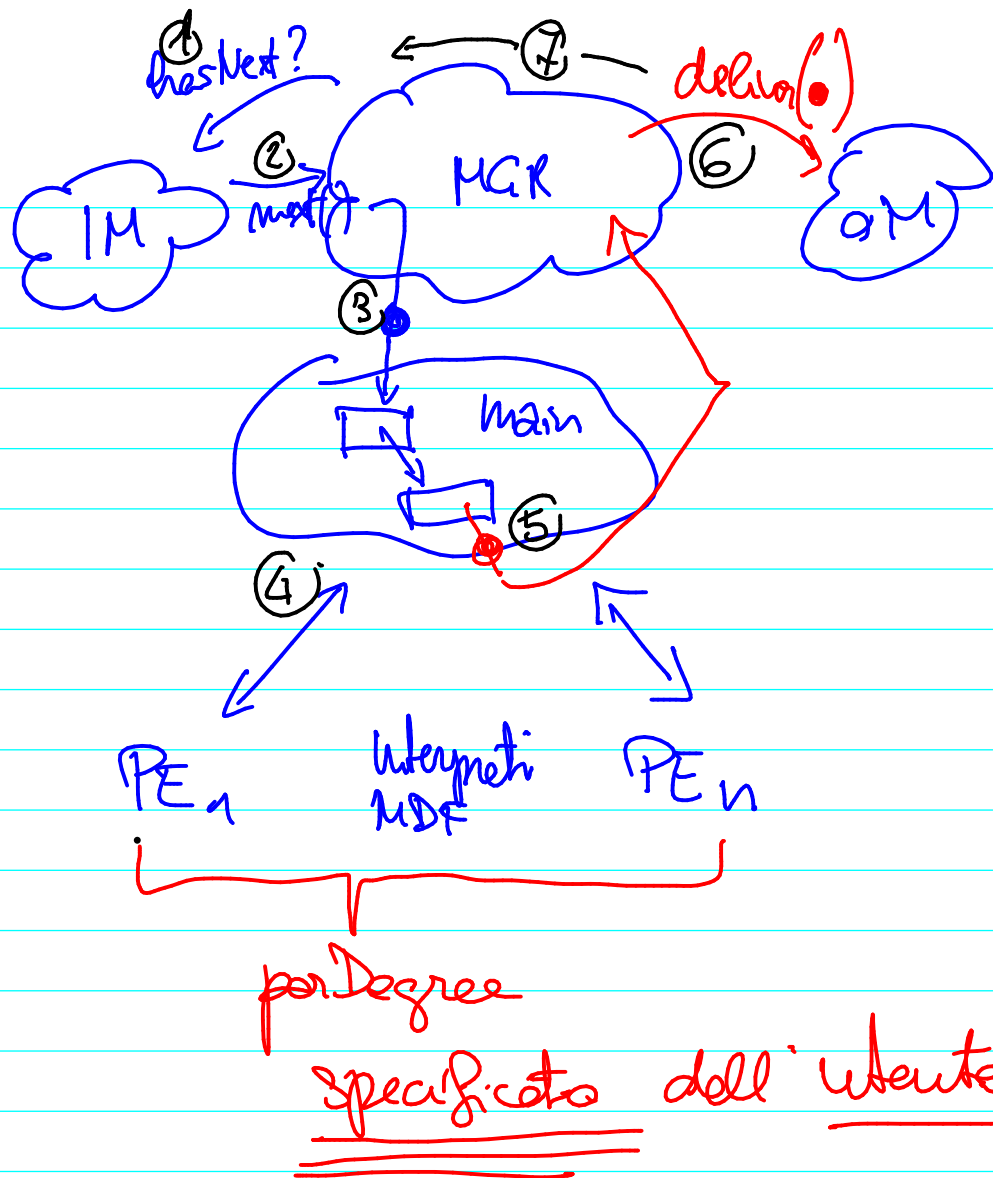 1
hasNext?
7
deliver(•)
2
next()
IM
MGR
6
OM
3
main
5
4
PE1
Interpreti
MDF
PEn
parDegree
specificato dall'utente